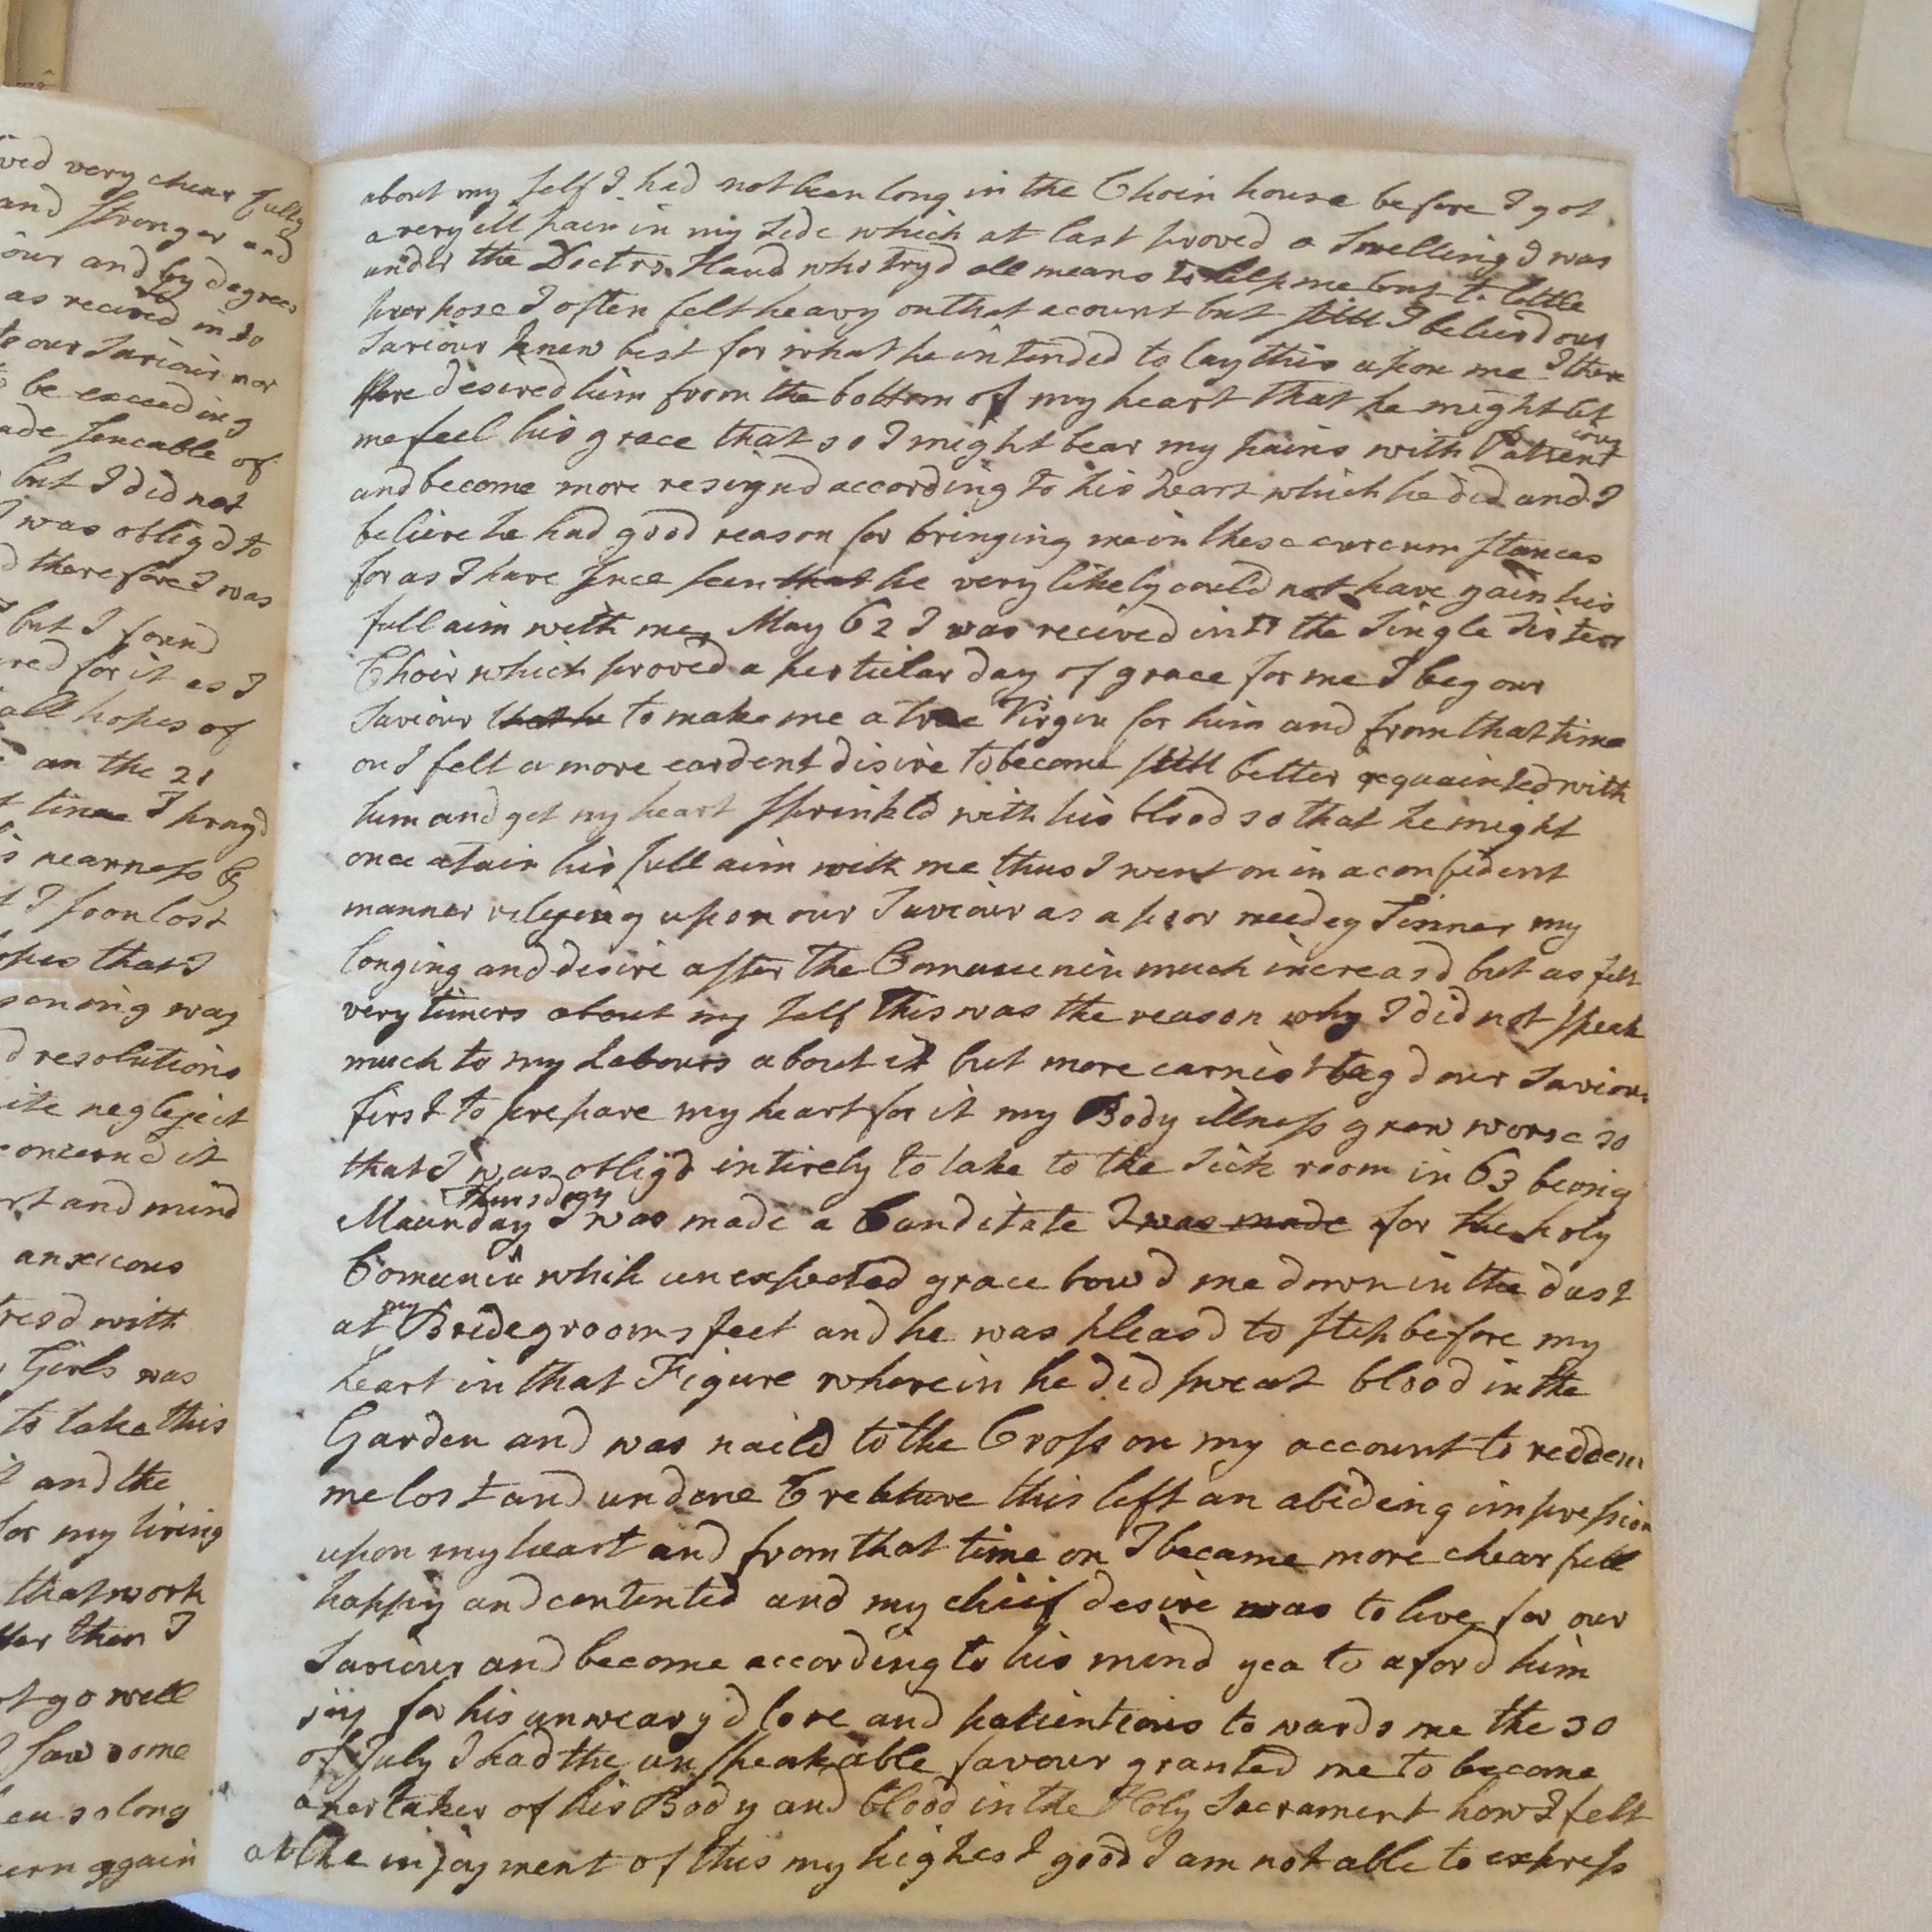 ved very chear fully
and stronger and
our and by degrees
as recived in to
to our Saviour nor
to be exceeding
ade sencable of
but I did not
I was obligd to
d therefore I was
but I found
red for it as I
all hopes of
an the 21
t time I prayd
is nearness by
t I soon lost
opes that I
soning way
d resolutions
ite negleject
concernd it
rt and mind
anxious
resd with
Girls was
to take this
t and the
for my living
that work
tter then I
ot go well
I saw some
en so long
ern again
about my self I had not been long in the Choir house before I got
a very ill pain in my side which at last proved a Swelling I was
under the Doctrs Hand who tryd all means to help me but to little
purpose I often felt heavy on that acount but still I believd our
Saviour knew best for what he intended to lay this upon me I there
fore desired him from the bottom of my heart that he might let
me feel his grace that so I might bear my pains with Patient
and become more resignd according to his heart which he did and I
believe he had good reason for bringing me in these circumstances
for as I have since seen that he very likely could not have gain his
full aim with me, May 62 I was recived into the Single Sisters
Choir which proved a perticular day of grace for me I beg our
Saviour that he to make me a true Virgin for him and from that time
on I felt a more eardent disire to become still better acquainted with
him and get my heart sprinkld with his blood so that he might
once atain his full aim with me thus I went on in a confident
manner relying upon our Saviour as a poor needey Sinner my
longing and desire after the Comunion much increasd but as felt
very timers about my self this was the reason why I did not speak
much to my Labours about it but more earnist begd our Saviour
first to prepare my heart for it my Body illness grew worse so
that I was obligd intirely to take to the Sick room in 63 being
Thursdagy
Maunday I was made a Canditate I was made for the holy
Comunin which unexpected grace bowd me down in the dust
at my Bridegrooms feet and he was pleasd to step before my
heart in that Figure wherein he did sweat blood in the
Garden and was naild to the Cross on my account to reddem
me lost and undone Creature this left an abideing impression
upon my heart and from that time on I became more chearfull
happy and contented and my chief desire was to live for our
Saviour and become according to his mind yea to aford him
joy for his unwearyd love and patientious to wards me the 30
of July I had the unspeakable favour granted me to become
apertaker of his Body and blood in the Holy Sacrament how I felt
at the injoyment of this my highest good I am not able to express